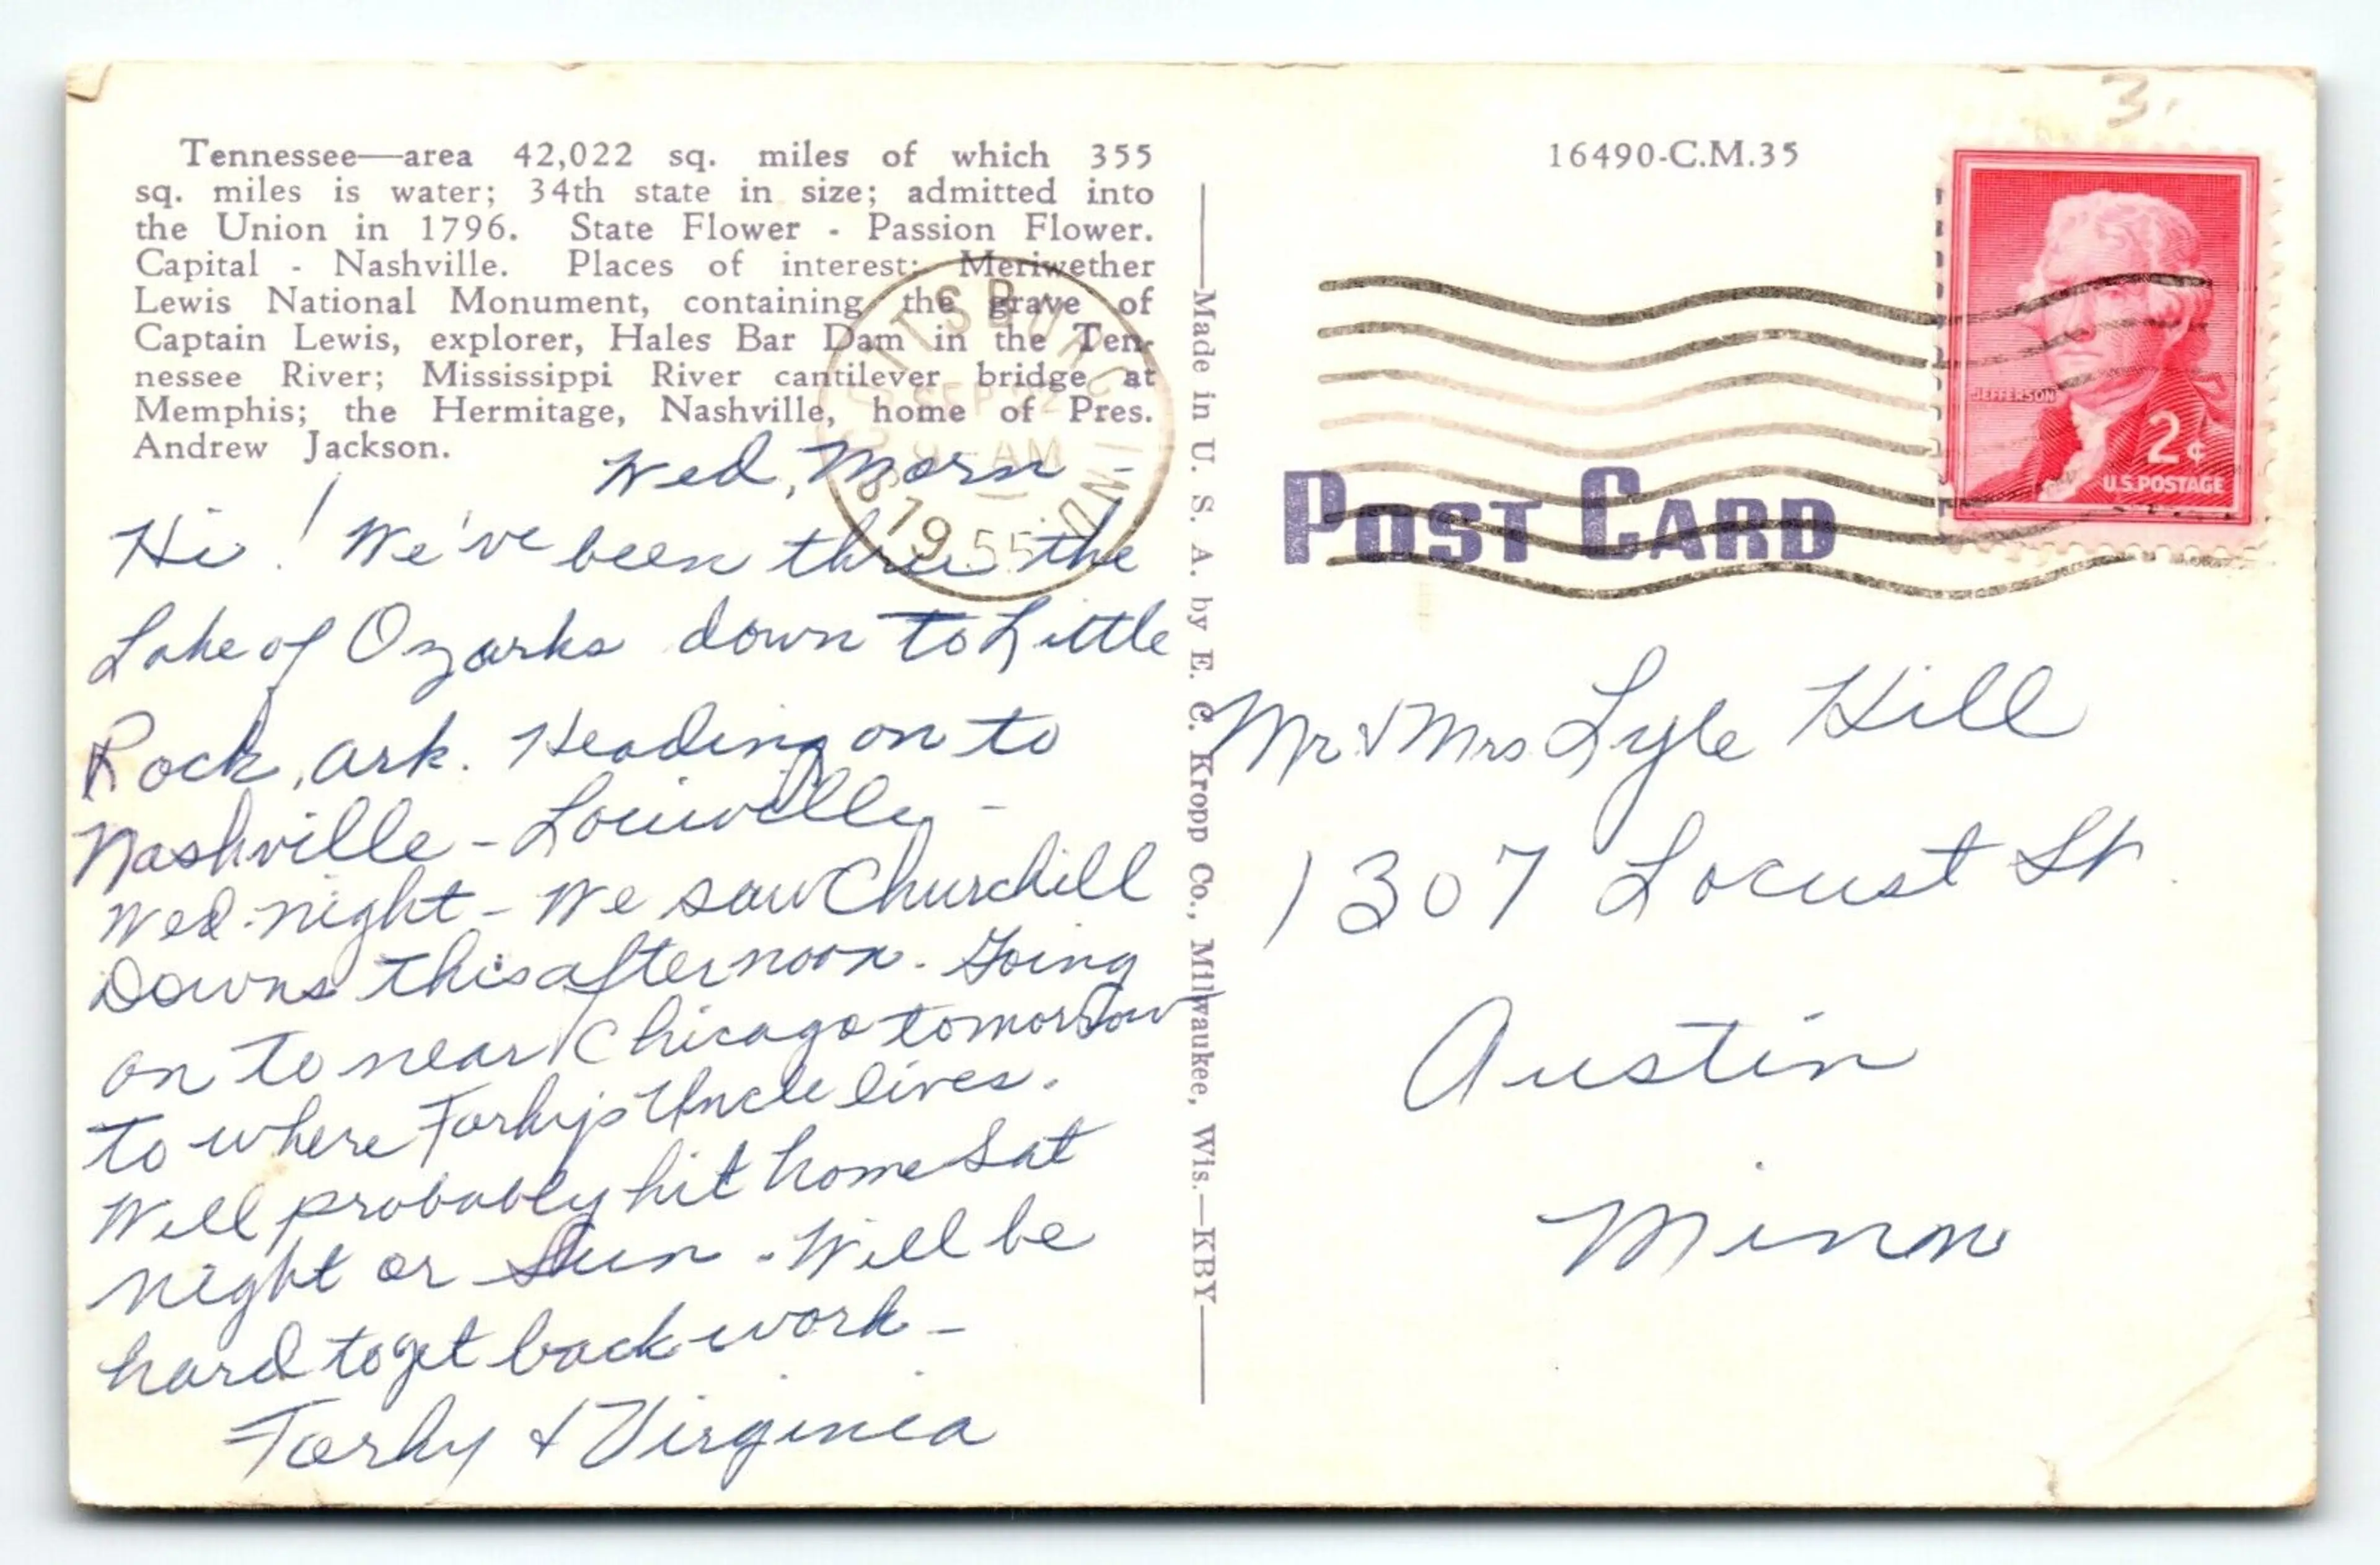 3.
Tennessee—area 42,022 sq. miles of which 355
sq. miles is water; 34th state in size; admitted into
the Union in 1796. State Flower - Passion Flower.
Capital - Nashville. Places of interest: Meriwether
Lewis National Monument, containing the grave of
Captain Lewis, explorer, Hales Bar Dam in the Ten-
nessee River; Mississippi River cantilever bridge at
Memphis; the Hermitage, Nashville, home of Pres.
Andrew Jackson.
Wed, Morn -
Hi! We've been thru the
Lake of Ozarks down to Little
Rock, Ark. Heading on to
Nashville - Louisville -
Wed. night - We saw Churchill
Downs this afternoon. Going
on to near Chicago tomorrow
to where Uncle lives.
Will probably hit home Sat
night or Sun. Will be
hard to get back work -
& Virginia
SCOTTSBURG
SEP 22
AM
1955
IND.
Made in U. S. A. by E. C. Kropp Co., Milwaukee, Wis.—KBY
16490-C.M.35
JEFFERSON
2¢
U.S.POSTAGE
POST CARD
Mr & Mrs Lyle Hill
1307 Locust St
Austin
Minn